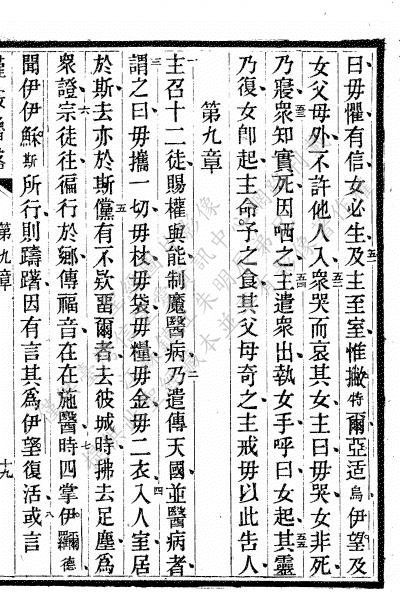 曰毋懼有信女必生及主至室惟撇特爾亞适烏伊望及
女父母外不許他人入衆哭而哀其女主曰毋哭女非死
乃寢衆知實死因哂之主遣衆出執女手呼曰女起其靈
乃復女卽起主命予之食其父母奇之主戒毋以此吿人
第九章
主召十二徒賜權與能制魔醫病乃遣傳天國並醫病者
謂之曰毋攜一切毋杖毋袋毋糧毋金毋二衣入人室居
於斯去亦於斯儻有不欵畱爾者去彼城時拂去足塵爲
衆證宗徒往徧行於鄉傳福音在在施醫時四掌伊羅爾德
聞伊伊穌斯所行則躊躇因有言其爲伊望復活或言
第九章
十九